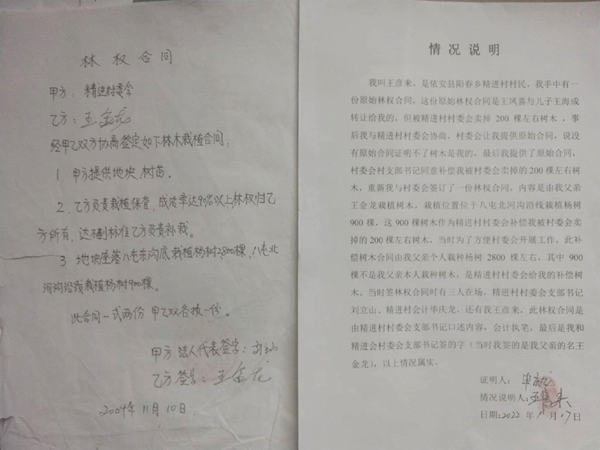 林权合同
甲方：精进村委会
乙方：王金龙
经甲乙双方协商签定如下林木栽植合同：
1 甲方提供地块，树苗。
2．乙方负责栽植保管，成活率达90%以上林权归乙
方所有，达不到标准乙方负责补栽。
3 地块座落八屯东沟底栽植杨树2800棵，八屯北
河沟沿线栽植杨树900棵。
此合同一式两份 甲乙双各执一份。
甲方 法人代表签字：
乙方 签字：王金龙
2004年11月10日
情况说明
我叫王彦来，是依安县阳春乡精进村村民，我手中有一
份原始林权合同，这份原始林权合同是王凤露与儿子王海成
转让给我的，但被精进村村委会卖掉 200 棵左右树木，事
后我与精进村村委会协商，村委会让我提供原始合同，说没
有原始合同证明不了树木是我的，最后我提供了原始合同，
村委会村支部书记同意补偿我被村委会卖掉的 200 棵左右树
木，重新我与村委会签订了一份林权合同，内容是由我父亲
王金龙栽植树木，栽植位置位于八屯北河沟沿线栽植杨树
900 棵，这 900 棵树木作为精进村村委会补偿我被村委会卖
掉的 200 棵左右树木，当时为了方便村委会开展工作，此补
偿树木合同由我父亲个人栽种杨树 2800 棵左右，其中 900
棵不是我父亲本人栽种树木，是精进村村委会给我的补偿树
木。当时签林权合同时有三人在场，精进村村委会支部书记
刘立山，精进村会计毕庆龙，还有我王彦来，此林权合同是
由精进村村委会支部书记口述内容，会计执笔，最后是我和
精进会村支部书记签的字（当时我签的是我父亲的名王
金龙），以上情况属实。
证明人：
情况说明人：王彦来
日期：2022年11月17日